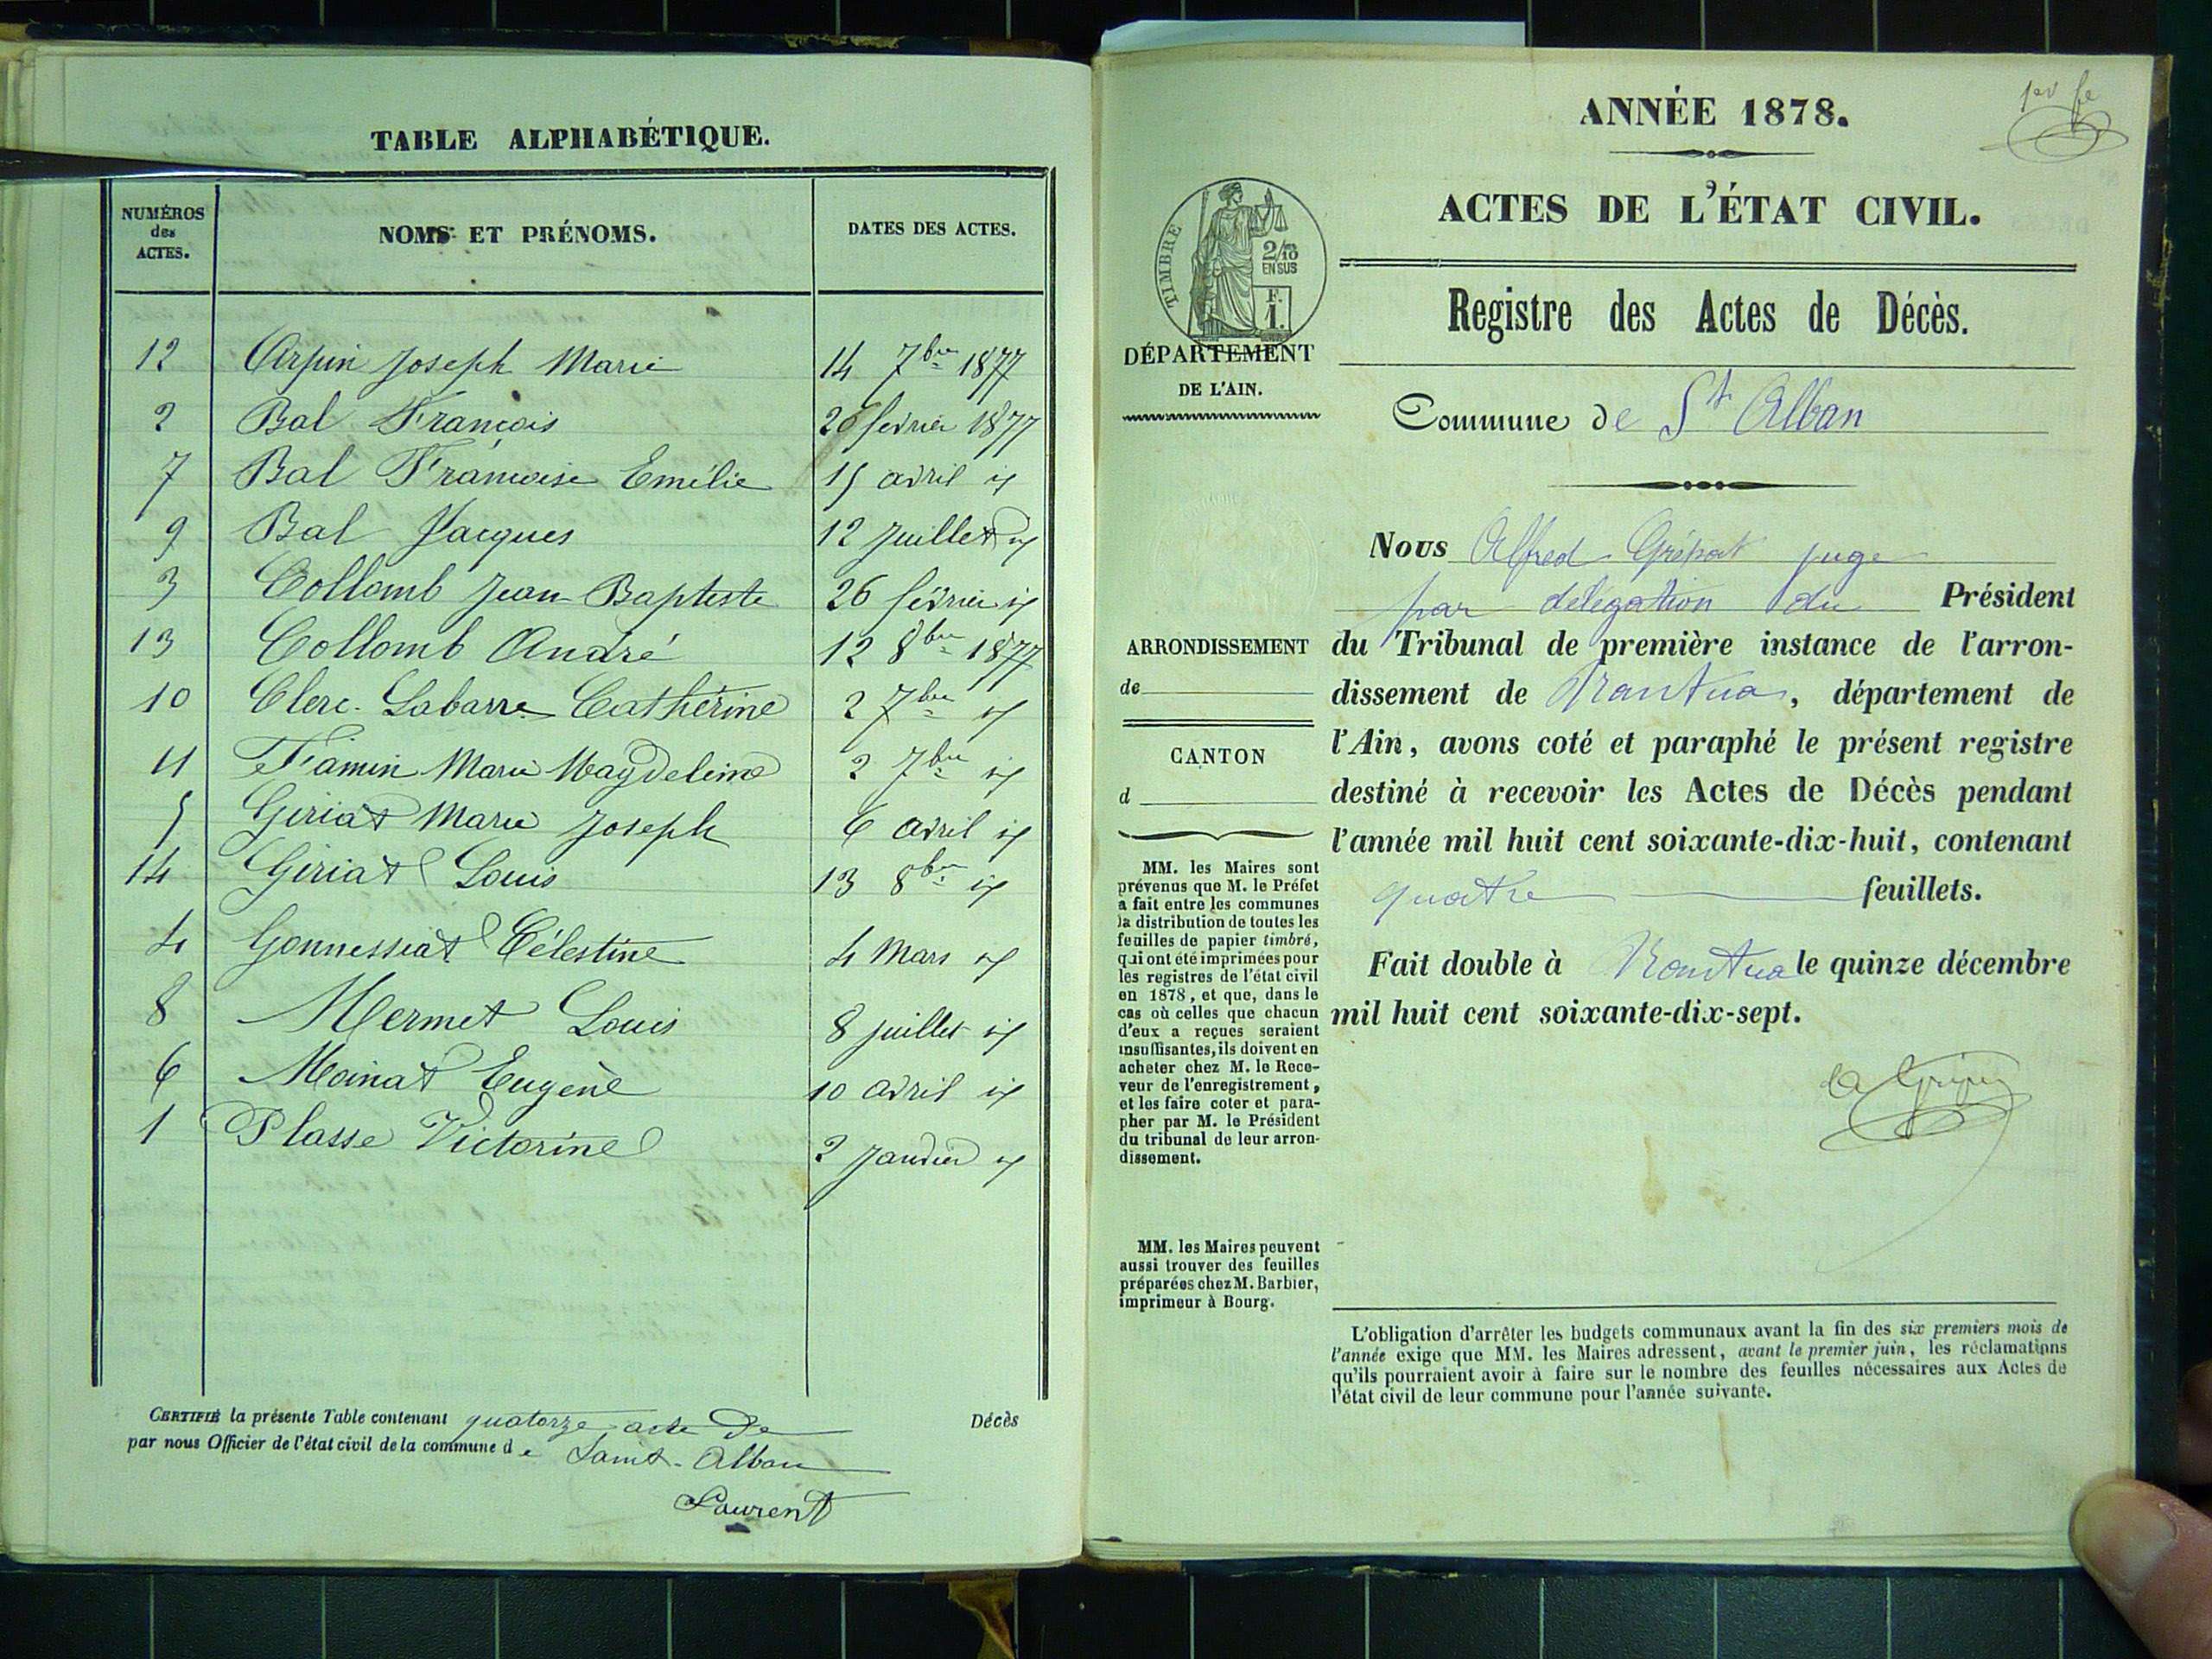 TABLE ALPHABÉTIQUE.
NUMÉROS des ACTES. NOMS ET PRÉNOMS. DATES DES ACTES.
12 Arpin Joseph Marie 14 7bre 1877
2 Bal François 26 février 1877
7 Bal Françoise Emélie 15 avril id
9 Bal Jacques 12 Juillet id
3 Collomb Jean Baptiste 26 février id
13 Collomb André 12 8bre 1877
10 Clerc-Labarre Catherine 2 7bre id
11 Famin Marie Magdeleine 2 7bre id
5 Giriat Marie Joseph 6 avril id
14 Giriat Louis 13 8bre id
4 Gonnessiat Célestine 4 Mars id
8 Mermet Louis 8 juillet id
6 Moinat Eugène 10 avril id
1 Plasse Victorine 2 Janvier id
CERTIFIÉ la présente Table contenant quatorze acte de Décès
par nous Officier de l'état civil de la commune de Saint-Alban
Laurent
1er fe
ANNÉE 1878.
ACTES DE L'ÉTAT CIVIL.
Registre des Actes de Décès.
Commune de St Alban
TIMBRE
2/10
EN SUS
F.
1.
DÉPARTEMENT
DE L'AIN.
ARRONDISSEMENT
de
CANTON
d
MM. les Maires sont
prévenus que M. le Préfet
a fait entre les communes
la distribution de toutes les
feuilles de papier timbré,
qui ont été imprimées pour
les registres de l'état civil
en 1878, et que, dans le
cas où celles que chacun
d'eux a reçues seraient
insuffisantes, ils doivent en
acheter chez M. le Rece-
veur de l'enregistrement,
et les faire coter et para-
pher par M. le Président
du tribunal de leur arron-
dissement.
MM. les Maires peuvent
aussi trouver des feuilles
préparées chez M. Barbier,
imprimeur à Bourg.
Nous Alfred juge
par délégation du Président
du Tribunal de première instance de l'arron-
dissement de Nantua, département de
l'Ain, avons coté et paraphé le présent registre
destiné à recevoir les Actes de Décès pendant
l'année mil huit cent soixante-dix-huit, contenant
quatre feuillets.
Fait double à Nantua le quinze décembre
mil huit cent soixante-dix-sept.
L'obligation d'arrêter les budgets communaux avant la fin des six premiers mois de
l'année exige que MM. les Maires adressent, avant le premier juin, les réclamations
qu'ils pourraient avoir à faire sur le nombre des feuilles nécessaires aux Actes de
l'état civil de leur commune pour l'année suivante.